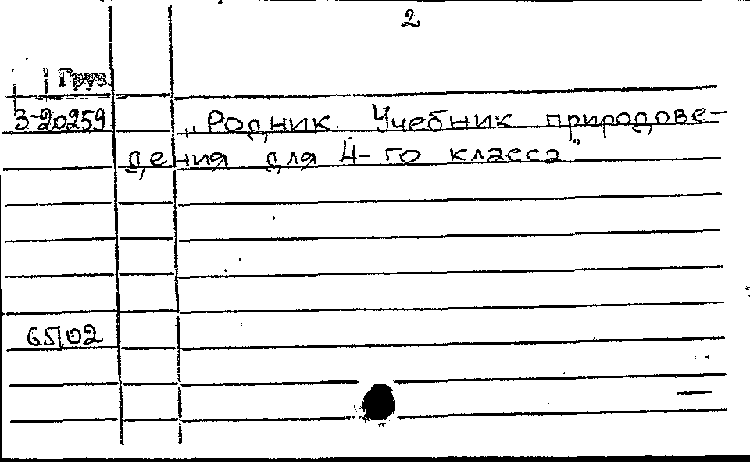 2
Груз.
3-20259
„Родник. Учебник природове-
дения для 4-го класса"
65/02